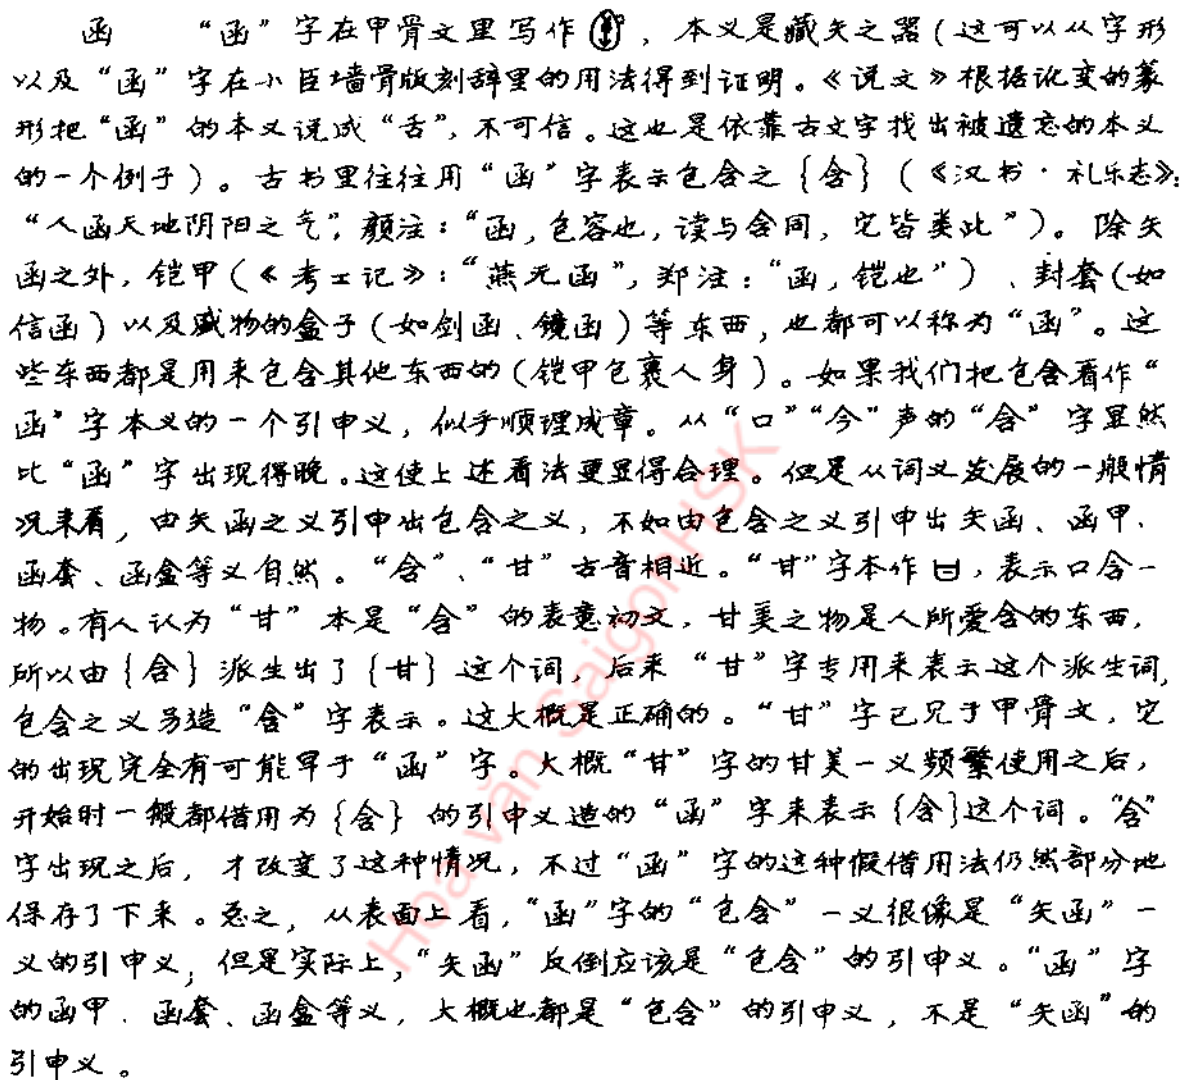 函 “函”字在甲骨文里写作 , 本义是藏矢之器(这可以从字形
以及“函”字在小臣墙骨版刻辞里的用法得到证明。《说文》根据讹变的篆
形把“函”的本义说成“舌”,不可信。这也是依靠古文字找出被遗忘的本义
的一个例子)。古书里往往用“函”字表示包含之{含}(《汉书·礼乐志》:
“人函天地阴阳之气”,颜注:“函,包容也,读与含同,它皆类此”)。除矢
函之外,铠甲(《考工记》:“燕无函”,郑注:“函,铠也”)、封套(如
信函)以及盛物的盒子(如剑函、镜函)等东西,也都可以称为“函”。这
些东西都是用来包含其他东西的(铠甲包裹人身)。如果我们把包含看作“
函”字本义的一个引申义,似乎顺理成章。从“口”“今”声的“含”字显然
比“函”字出现得晚。这使上述看法更显得合理。但是从词义发展的一般情
况来看,由矢函之义引申出包含之义,不如由包含之义引申出矢函、函甲、
函套、函盒等义自然。“含”、“甘”古音相近。“甘”字本作 ,表示口含一
物。有人认为“甘”本是“含”的表意初文,甘美之物是人所爱含的东西,
所以由{含}派生出了{甘}这个词,后来“甘”字专用来表示这个派生词,
包含之义另造“含”字表示。这大概是正确的。“甘”字已见于甲骨文,它
的出现完全有可能早于“函”字。大概“甘”字的甘美一义频繁使用之后,
开始时一般都借用为{含}的引申义造的“函”字来表示{含}这个词。“含”
字出现之后,才改变了这种情况,不过“函”字的这种假借用法仍然部分地
保存了下来。总之,从表面上看,“函”字的“包含”一义很像是“矢函”一
义的引申义,但是实际上,“矢函”反倒应该是“包含”的引申义。“函”字
的函甲、函套、函盒等义,大概也都是“包含”的引申义,不是“矢函”的
引申义。
Hoa văn SaigonHSK